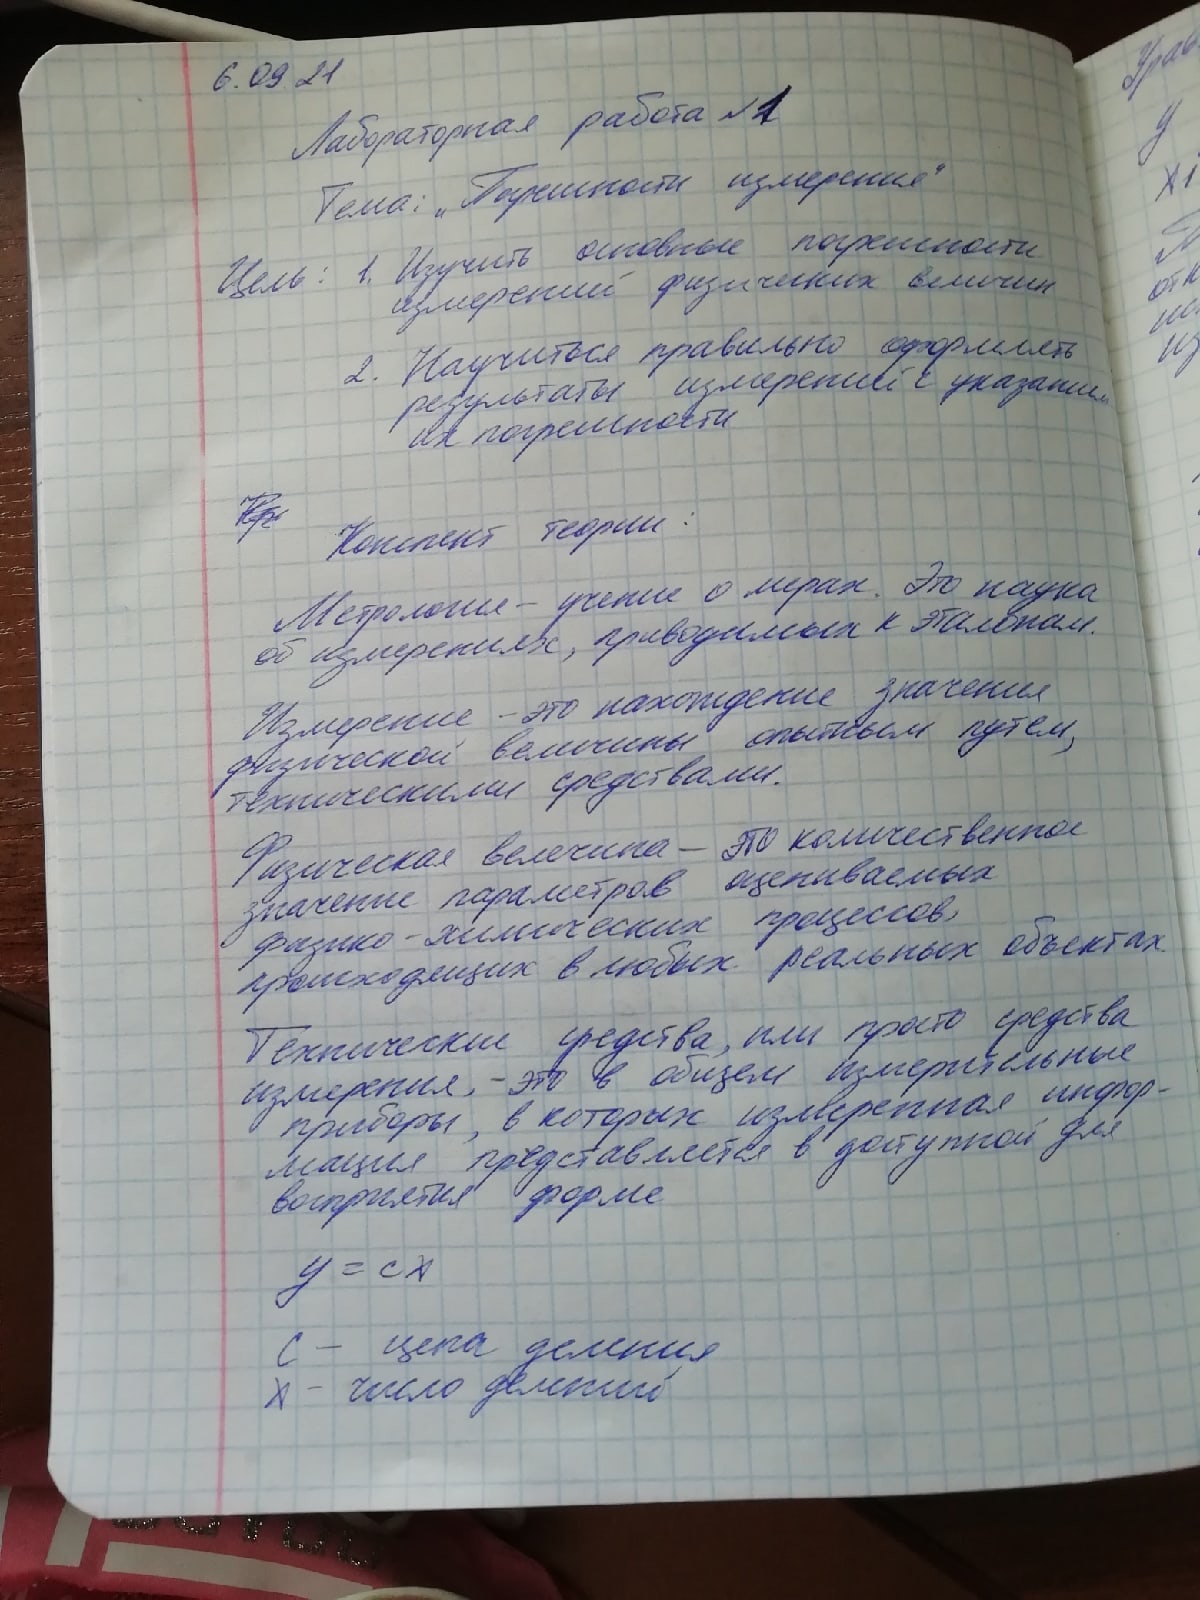 6.09.21
Лабораторная работа №1
Тема: „Погрешности измерения"
Цель: 1. Изучить основные погрешности
измерений физических величин
2. Научиться правильно оформлять
результаты измерений с указанием
их погрешности
Конспект теории:
Метрология – учение о мерах. Это наука
об измерениях, приводимых к эталонам.
Измерение – это нахождение значения
физической величины опытным путем,
техническими средствами.
Физическая велечина – это количественное
значение параметров оцениваемых
физико-химических процессов,
происходящих в любых реальных объектах
Технические средства, или просто средства
измерения, – это в общем измерительные
приборы, в которых измеренная инфор-
мация представляется в доступной для
восприятия форме
y = cx
C – цена деления
x – число делений
y